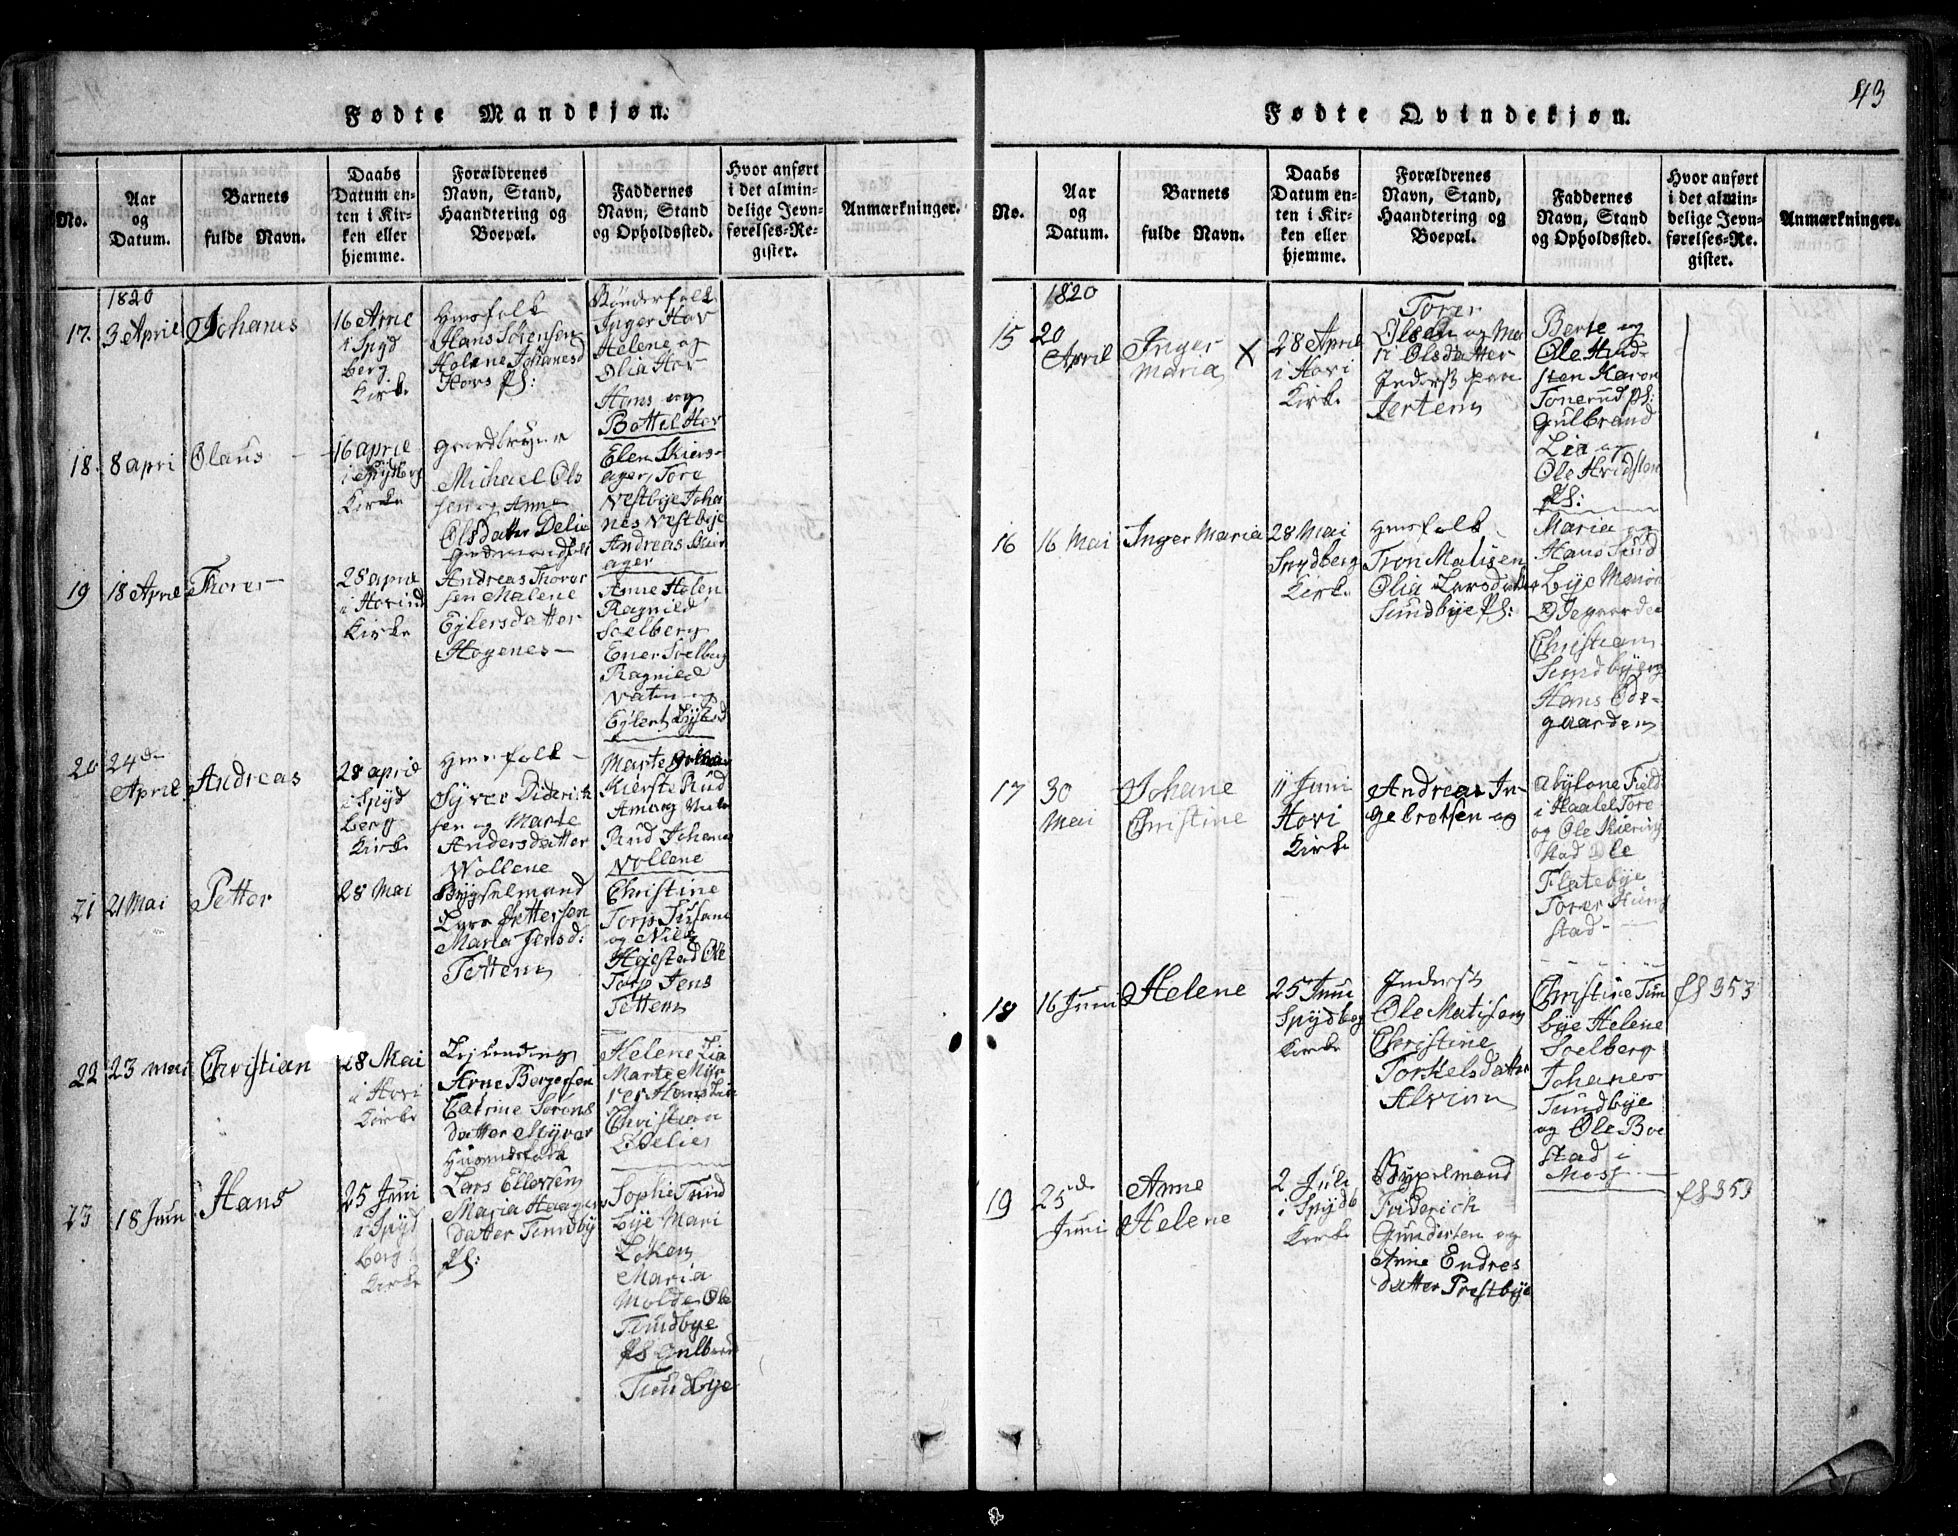 43
Fødte Mandkjøn.
No.
Aar
og
Datum.
Barnets
fulde Navn.
Daabs
Datum en-
ten i Kir-
ken eller
hjemme.
Forældrenes
Navn, Stand,
Haandtering og
Boepæl.
Faddernes
Navn, Stand
og Opholdssted.
Hvor anført
i det almin-
delige Jevn-
førelses-Re-
gister.
Anmærkninger.
1820
17.
3 April
Johanes
16 Aprie
i Spyd
berg
Kirke
Hmsfolk
Hans Sørensen
Helene Johanesd
Hovs Pl:
Bønderfolk
Inger Hov
Helene og
Olia Hov
Hans og
Bottel Hov
18.
8 apri
Olaus
16 aprie
i Spydberg
Kirke
Michael Ols
sen og Anne
Olsdatter Delie
Elen Skiers-
ager, Tore
Vestbye Joha
nes Vestbye
Andreas Skier
ager
19
18 Aprie
Thorer
28 aprie
i Hovind
Kirke
Andreas Thorer
sen Malene
Eylersdatter
Hogenes
Anne Holen
Ragnild
Soelberg
Ener Soelberg
Ragnild
Vaten og
Eylert
20
24de
April
Andreas
28 april
i Spyd
berg
Kirke
Hmsfolk
Syver Diderik
sen og Marte
Andersdatter
Wollene
Marte
Kierste Rud
Rud Johanes
Vollene
21
21 Mai
Petter
28 Mai
Bygselmand
Lars Pettersen
Maria Jensd:
Tettem
Christine
Torp Susane
og Niels
Høiestad Ole
Torp Jens
Tettem
22
23 mai
Christian
28 Mai
i Hovi
Kirke
Arne Bergersen
Catrine Sørens
datter Myrer
Helene Lia
Marte Myr
rer Hans Lia
Christian
Edelier
23
18 Juni
Hans
25 Juni
i Spyd
berg
Kirke
Lars Ellevsen
Maria Haagens
datter Sundby
Pl:
Sophie Sund
bye Mari
Løken
Maria
Molde Ole
Sundbye
Pl Gulbrand
Sundbye
Fødte Qvindekjøn.
No.
Aar
og
Datum.
Barnets
fulde Navn.
Daabs
Datum en-
ten i Kir-
ken eller
hjemme.
Forældrenes
Navn, Stand,
Haandtering og
Boepæl.
Faddernes
Navn, Stand
og Opholdssted.
Hvor anført
i det almin-
delige Jevn-
førelses-Re-
gister.
Anmærkninger.
1820
15
20
April
Inger
Maria
X
28 April
i Hovi
Kirke
Torer
Olsen og Ma
ri Olsdatter
Inderst paa
Jertem
Berte og
Ole Hvid-
sten Karen
Tonerud Pl:
Gulbrand
Lia og
Ole Hvidsten
Pl:
16
16 Mai
Inger Maria
28 Mai
Spydberg
Kirke
Hmsfolk
Tron Matisen
Olia Larsdatter
Sundbye Pl:
Maria og
Hans Sund
bye Marion
Christian
Sundbye og
Hans Ode-
gaarden
17
30
Mai
Johane
Christine
11 Juni
Hovi
Kirke
Andreas In-
gebrotsen og
Abylone Field
i Haalel Tore
og Ole Skiering
stad Ole
Flatebye
Torer Skiering
stad
18
16 Juni
Helene
25 Juni
Spydberg
Kirke
Inderst
Ole Matisen
Christine
Torkelsdatter
Alvim
Christine Sun
bye Helene
Soelberg
Johanes
Sundbye
og Ole Boe
stad i
Moss
fl 353
19
25de
Juni
Anne
Helene
2 Juli
i Spydb
Kirke
Bygselmand
Friderich
Gundersen og
Anne Endres
datter Prestbye
fl 353